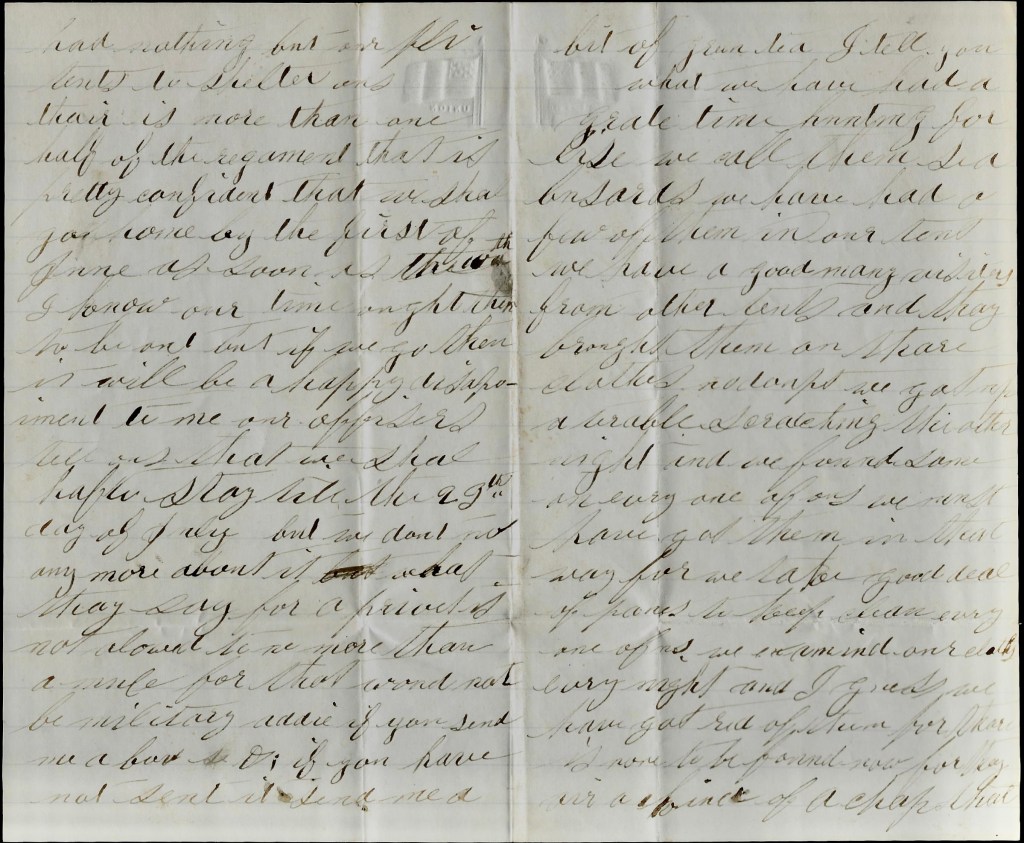 had nothing but our fli
tents to shelter ous
thair is more than one
half of the regament that is
pretty confident that we shal
go home by the first of
June as soon as the
I know our time ought then
to be out but if we go then
it will be a happy disapo-
intment to me our offisers
tell us that we shal
hafto stay till the 23th
day of July but we dont no
any more about it what
thay say for a privet is
not alowd to no more than
a mule for that woud not
be military addie if you send
me a box if you have
not sent it send me a
bit of green tea I tell you
what we have had a
grate time hunting for
lise we call them sea
busards we have had a
few of them in our tent
we have a good many visiters
from other tents and thay
brought them on thare
clothes no doupt we got up
a terable scratching the other
night and we found some
on evry one of ous we must
have got them in that
way for we take good deal
of panes to keep clean evry
one of us we examind our cloths
evry night and I gues we
have got red of them for thare
is none to be found now for thay
air a kind of a chap that